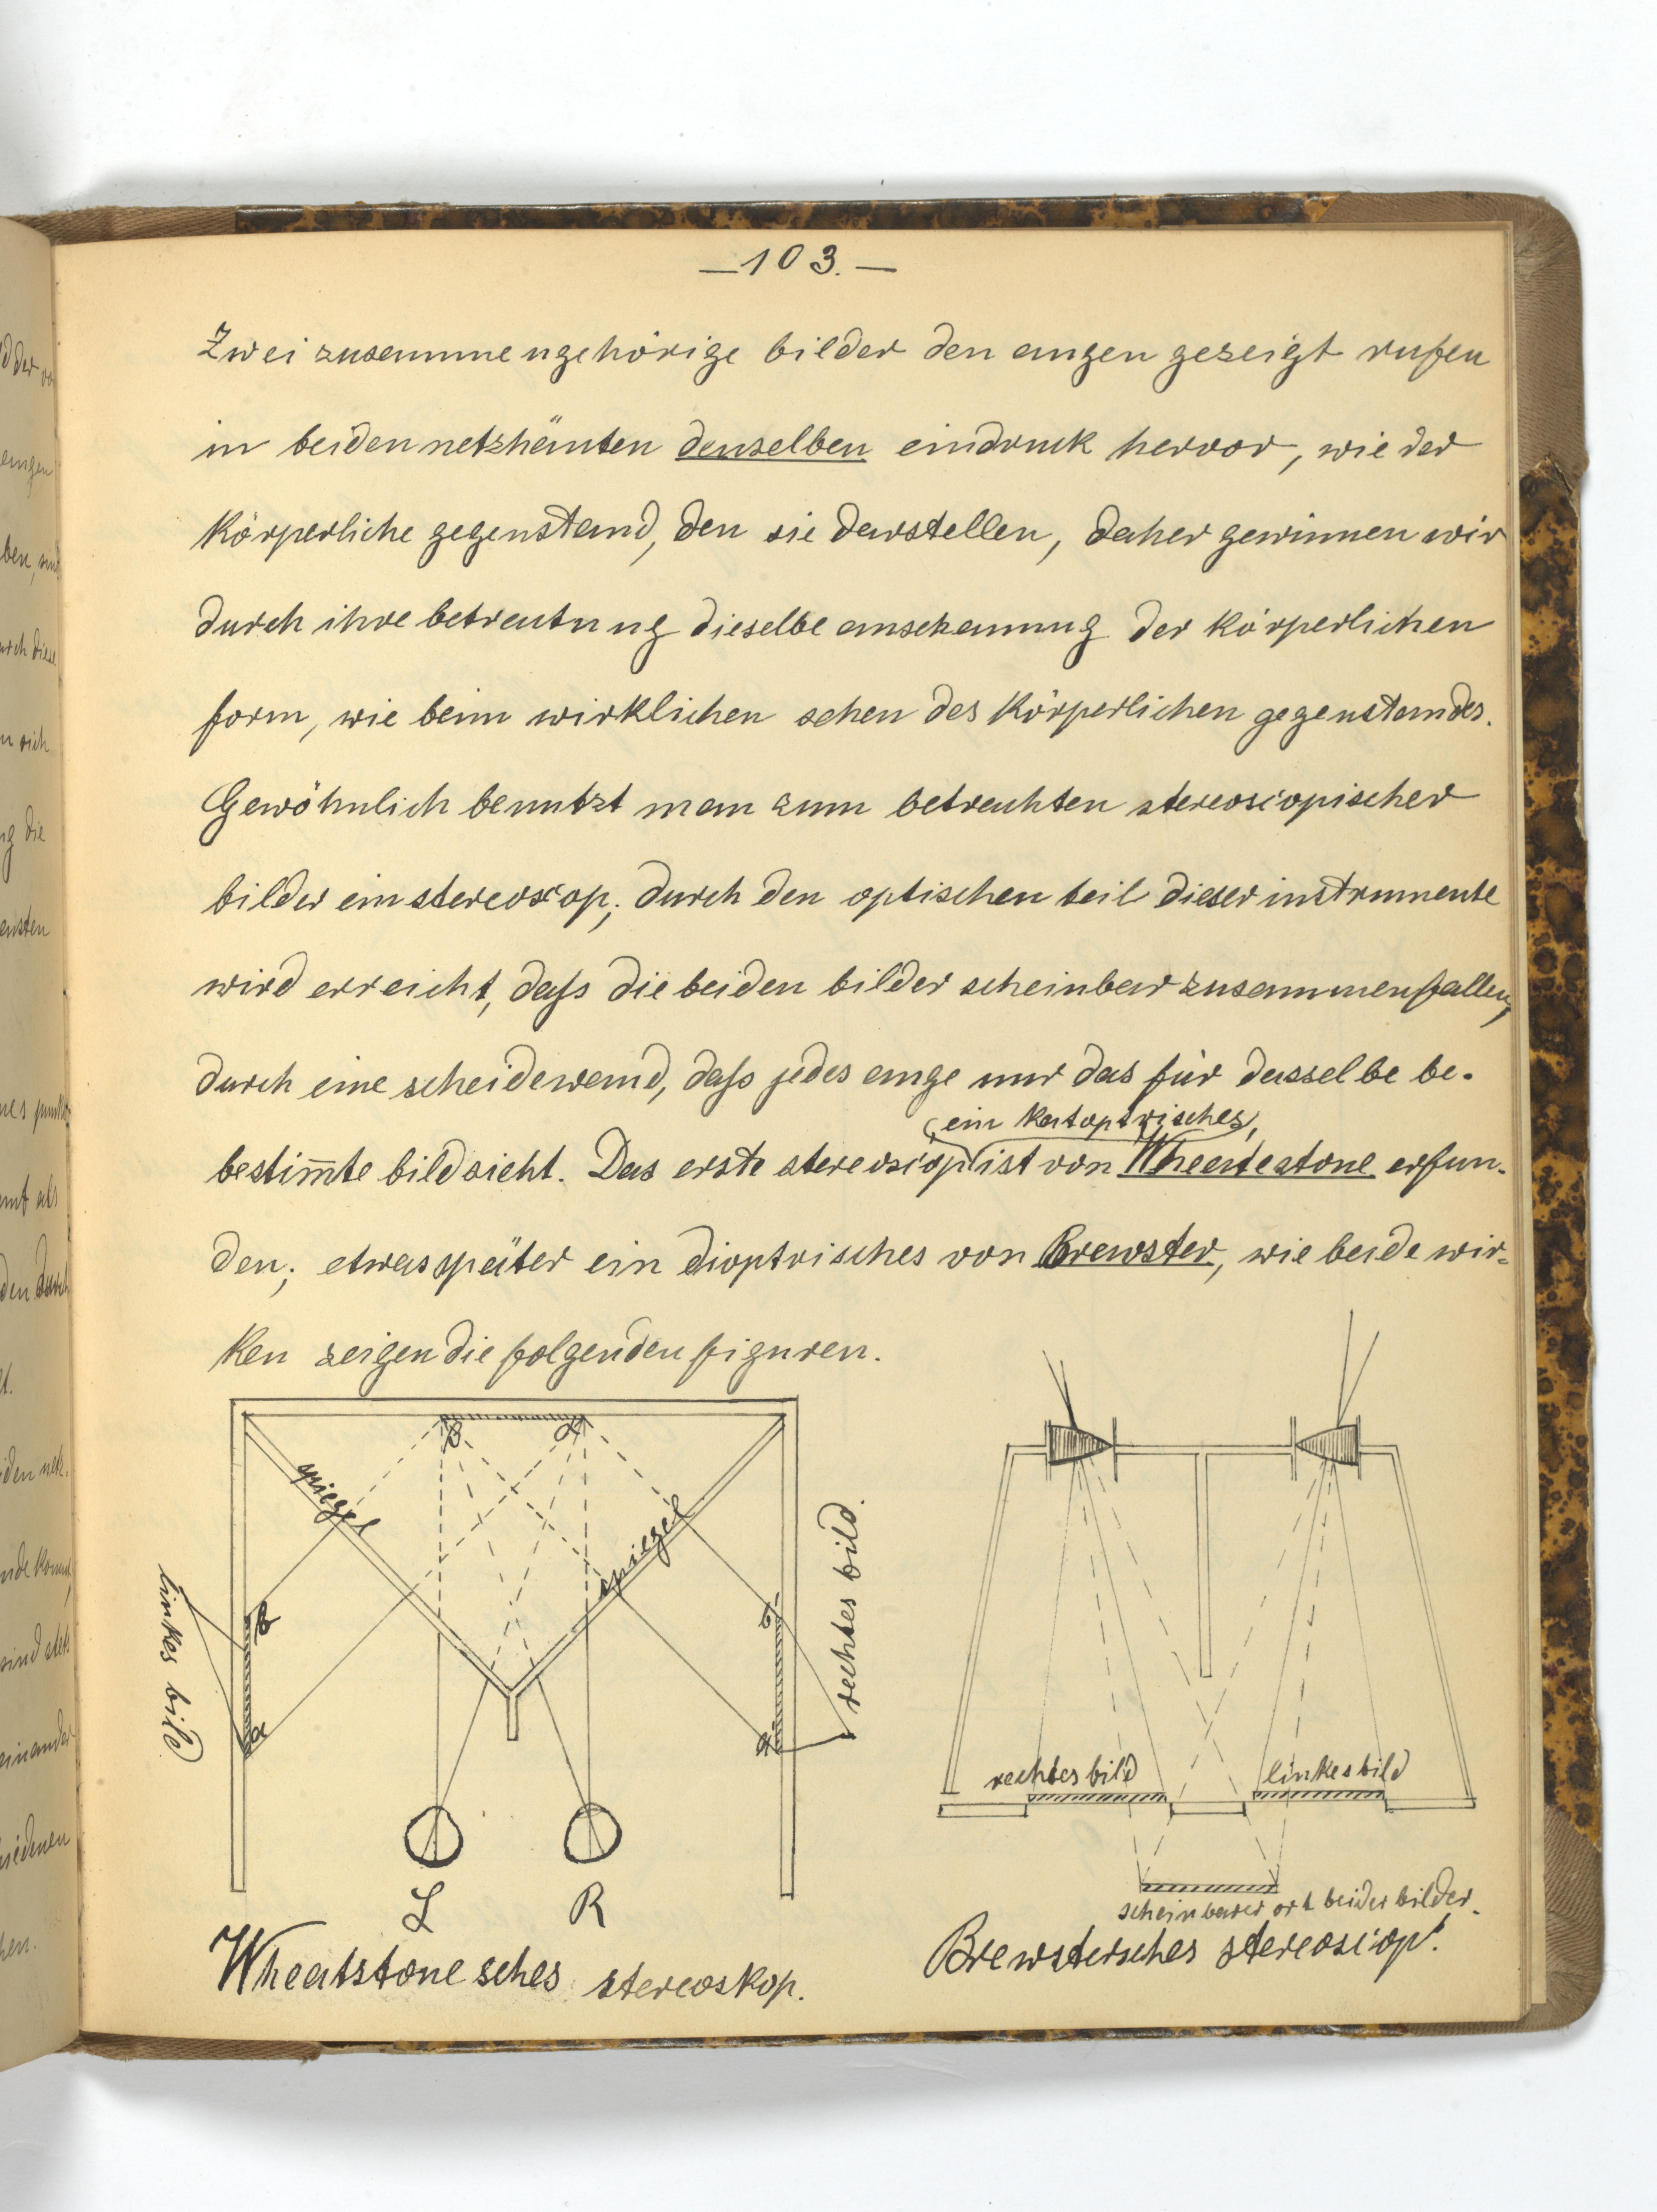 —103.—
Zwei zusammengehörige bilder den augen gezeigt rufen
in beiden netzhäuten denselben eindruck hervor, wie der
körperliche gegenstand, den sie darstellen, daher gewinnen wir
durch ihre betrachtung dieselbe anschauung der körperlichen
form, wie beim wirklichen sehen des körperlichen gegenstandes.
Gewöhnlich benutzt man zum betrachten stereoscopischer
bilder ein stereoscop; durch den optischen teil dieser instrumente
wird erreicht, daſs die beiden bilder scheinbar zusammenfallen,
durch eine scheidewand, daſs jedes auge nur das für dasselbe be-
(ein katoptrisches)
bestim̅te bild sieht. Das erste stereoscop ist von Wheatestone erfun-
den; etwas später ein dioptrisches von Brewster, wie beide wir-
ken zeigen die folgenden figuren.
β α
spiegel spiegel
linkes bild
b
a
b'
a'
rechtes bild.
L R
Wheatstonesches stereoskop.
rechtes bild linkes bild
scheinbarer ort beider bilder.
Brewstersches stereoscop.